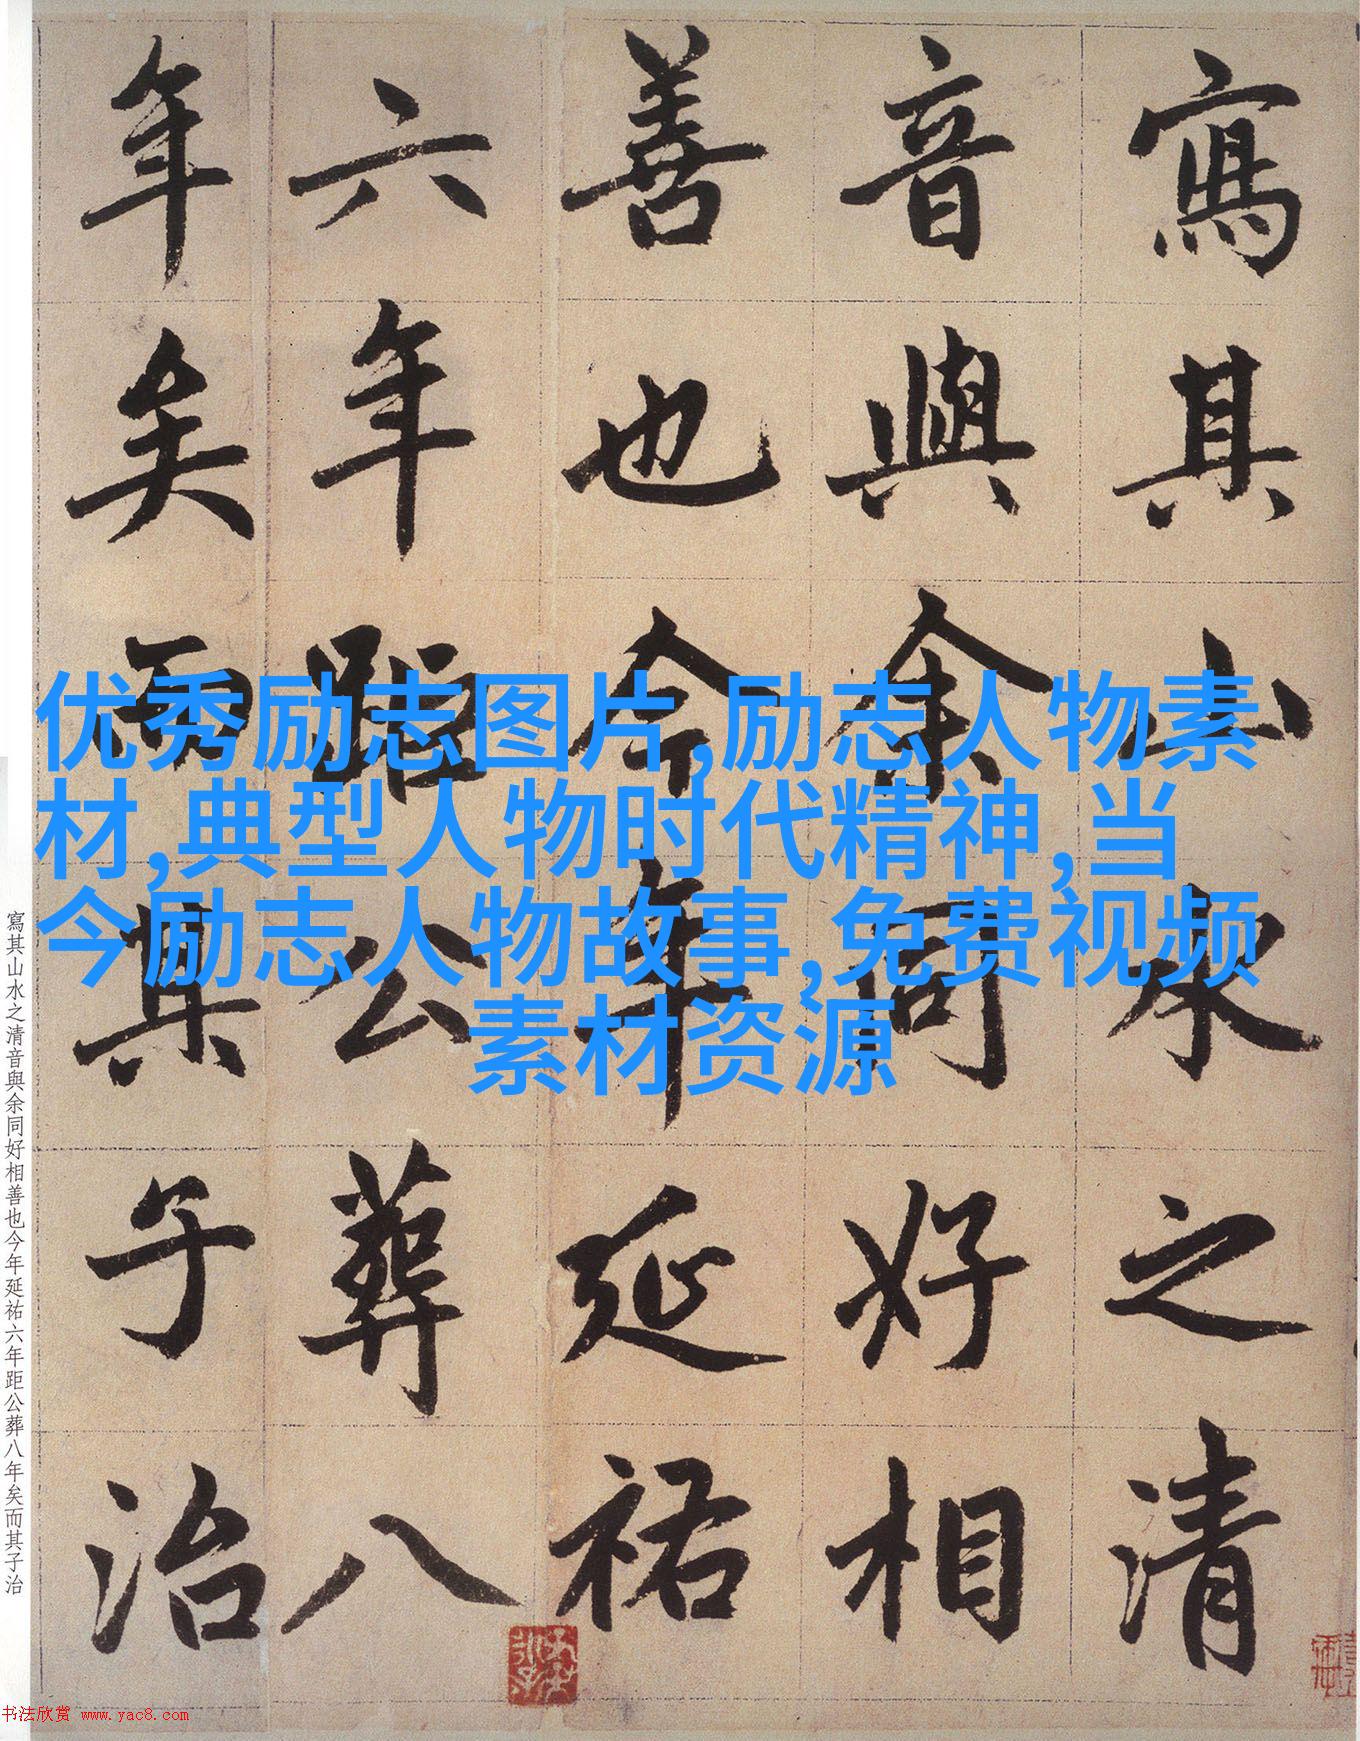 寫其山水之清
音與余同好相
善也今年延祐
六年距公葬八
年矣而其子治
优秀励志图片,励志人物素
材,典型人物时代精神,当
今励志人物故事,免费视频
素材资源
寫其山水之清音與余同好相善也今年延祐六年距公葬八年矣而其子治
书法欣赏 www.yac8.com